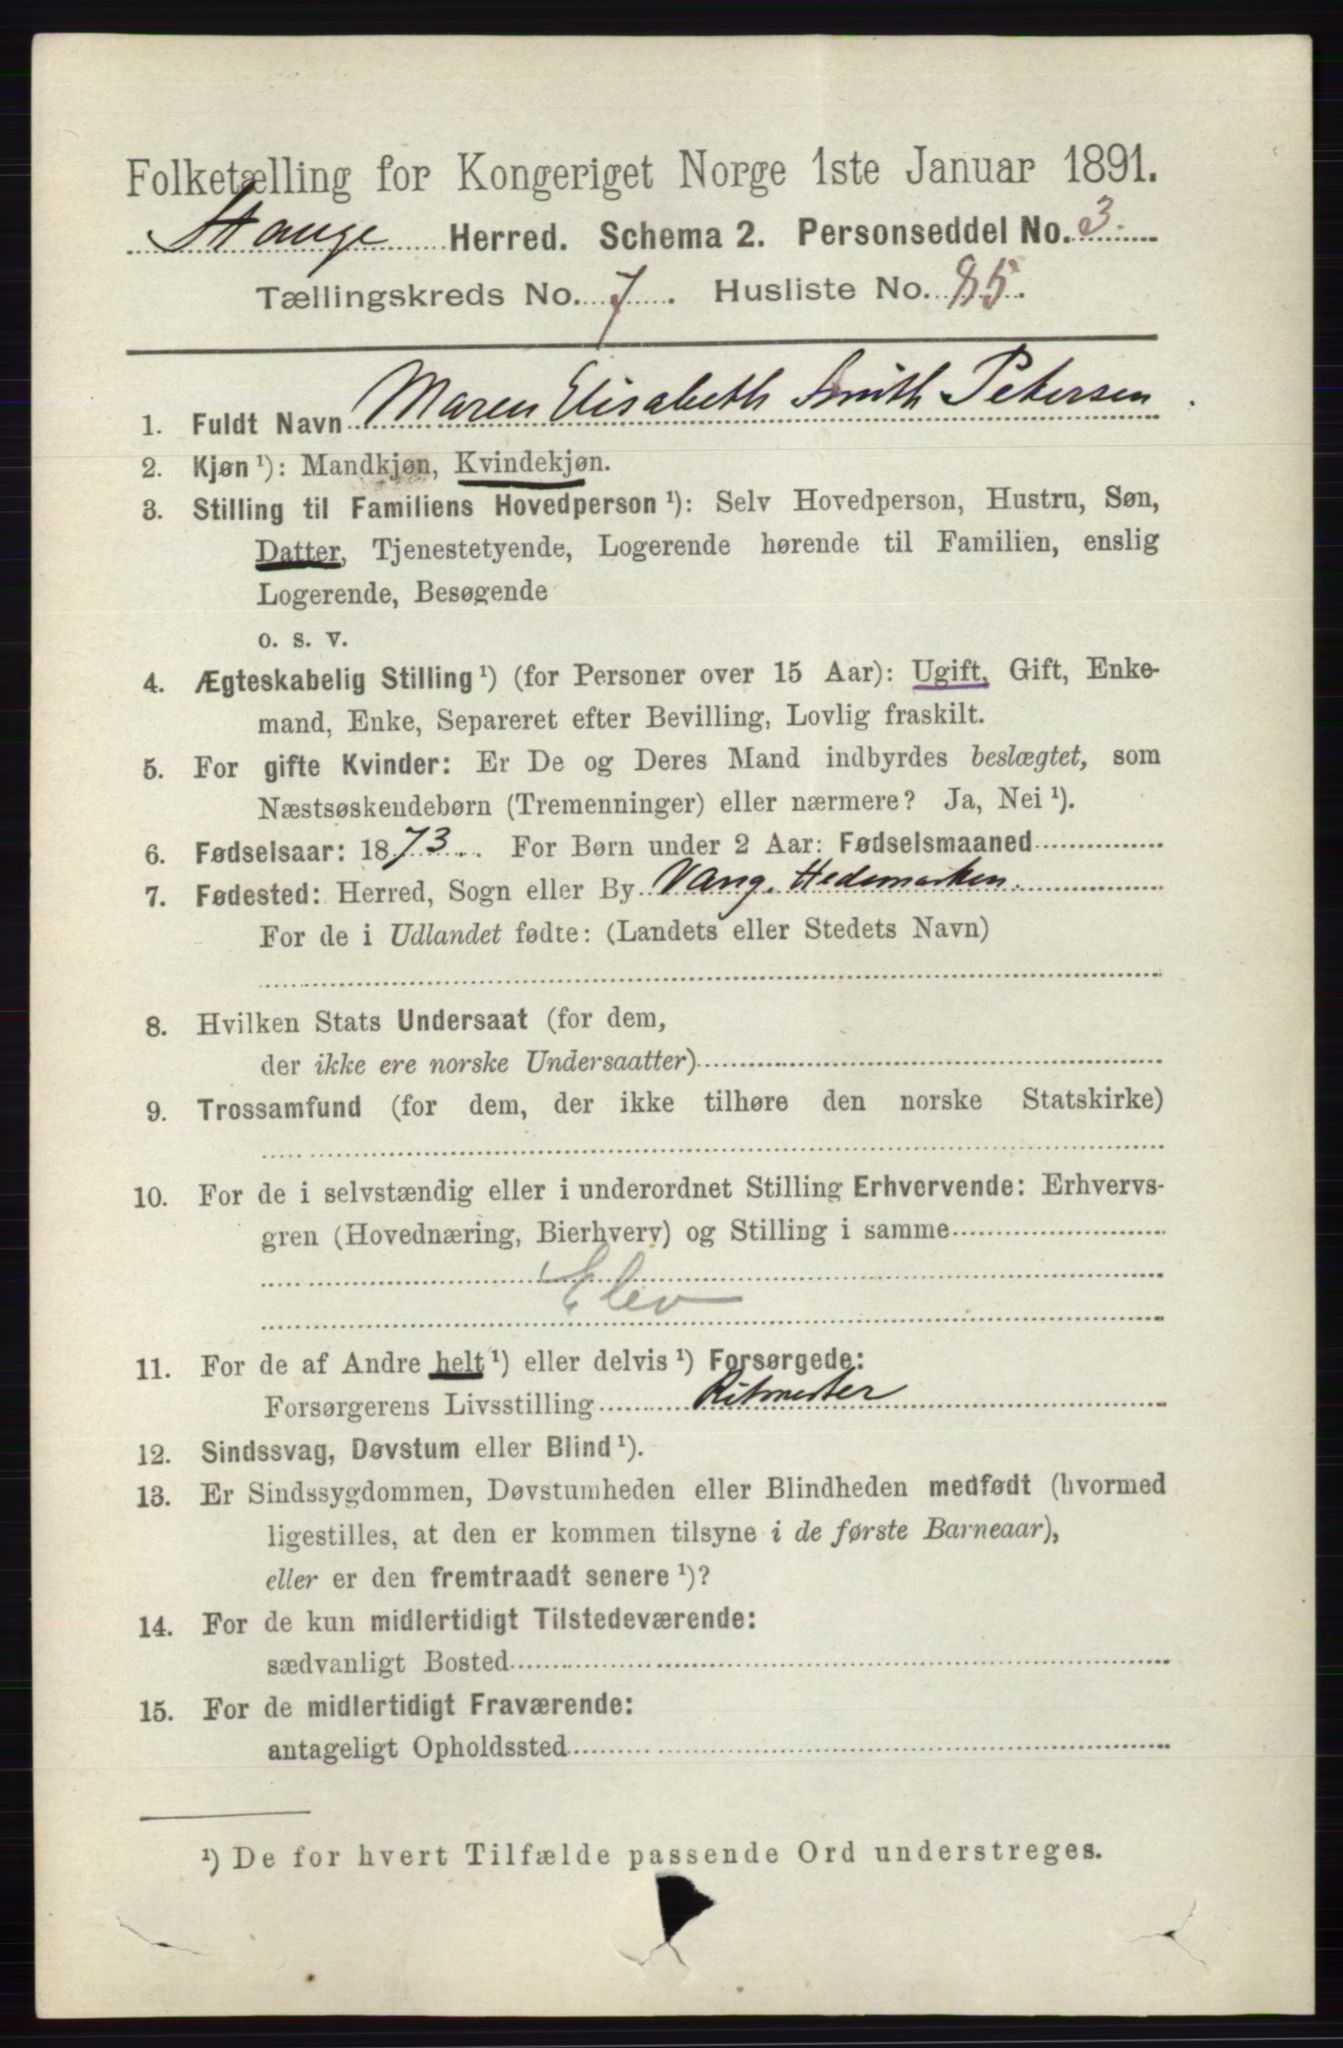 Folketælling for Kongeriget Norge 1ste Januar 1891.
Stange Herred. Schema 2. Personseddel No. 3.
Tællingskreds No. 7. Husliste No. 85.
1. Fuldt Navn Maren Elisabeth Smith Petersen.
2. Kjøn ¹): Mandkjøn, Kvindekjøn.
3. Stilling til Familiens Hovedperson ¹): Selv Hovedperson, Hustru, Søn,
Datter, Tjenestetyende, Logerende hørende til Familien, enslig
Logerende, Besøgende
o. s. v.
4. Ægteskabelig Stilling ¹) (for Personer over 15 Aar): Ugift, Gift, Enke-
mand, Enke, Separeret efter Bevilling, Lovlig fraskilt.
5. For gifte Kvinder: Er De og Deres Mand indbyrdes beslægtet, som
Næstsøskendebørn (Tremenninger) eller nærmere? Ja, Nei ¹).
6. Fødselsaar: 1873. For Børn under 2 Aar: Fødselsmaaned
7. Fødested: Herred, Sogn eller By Vang. Hedemarken.
For de i Udlandet fødte: (Landets eller Stedets Navn)
8. Hvilken Stats Undersaat (for dem,
der ikke ere norske Undersaatter)
9. Trossamfund (for dem, der ikke tilhøre den norske Statskirke)
10. For de i selvstændig eller i underordnet Stilling Erhvervende: Erhvervs-
gren (Hovednæring, Bierhverv) og Stilling i samme
Elev
11. For de af Andre helt ¹) eller delvis ¹) Forsørgede:
Forsørgerens Livsstilling Ritmester
12. Sindssvag, Døvstum eller Blind ¹).
13. Er Sindssygdommen, Døvstumheden eller Blindheden medfødt (hvormed
ligestilles, at den er kommen tilsyne i de første Barneaar),
eller er den fremtraadt senere ¹)?
14. For de kun midlertidigt Tilstedeværende:
sædvanligt Bosted
15. For de midlertidigt Fraværende:
antageligt Opholdssted
¹) De for hvert Tilfælde passende Ord understreges.